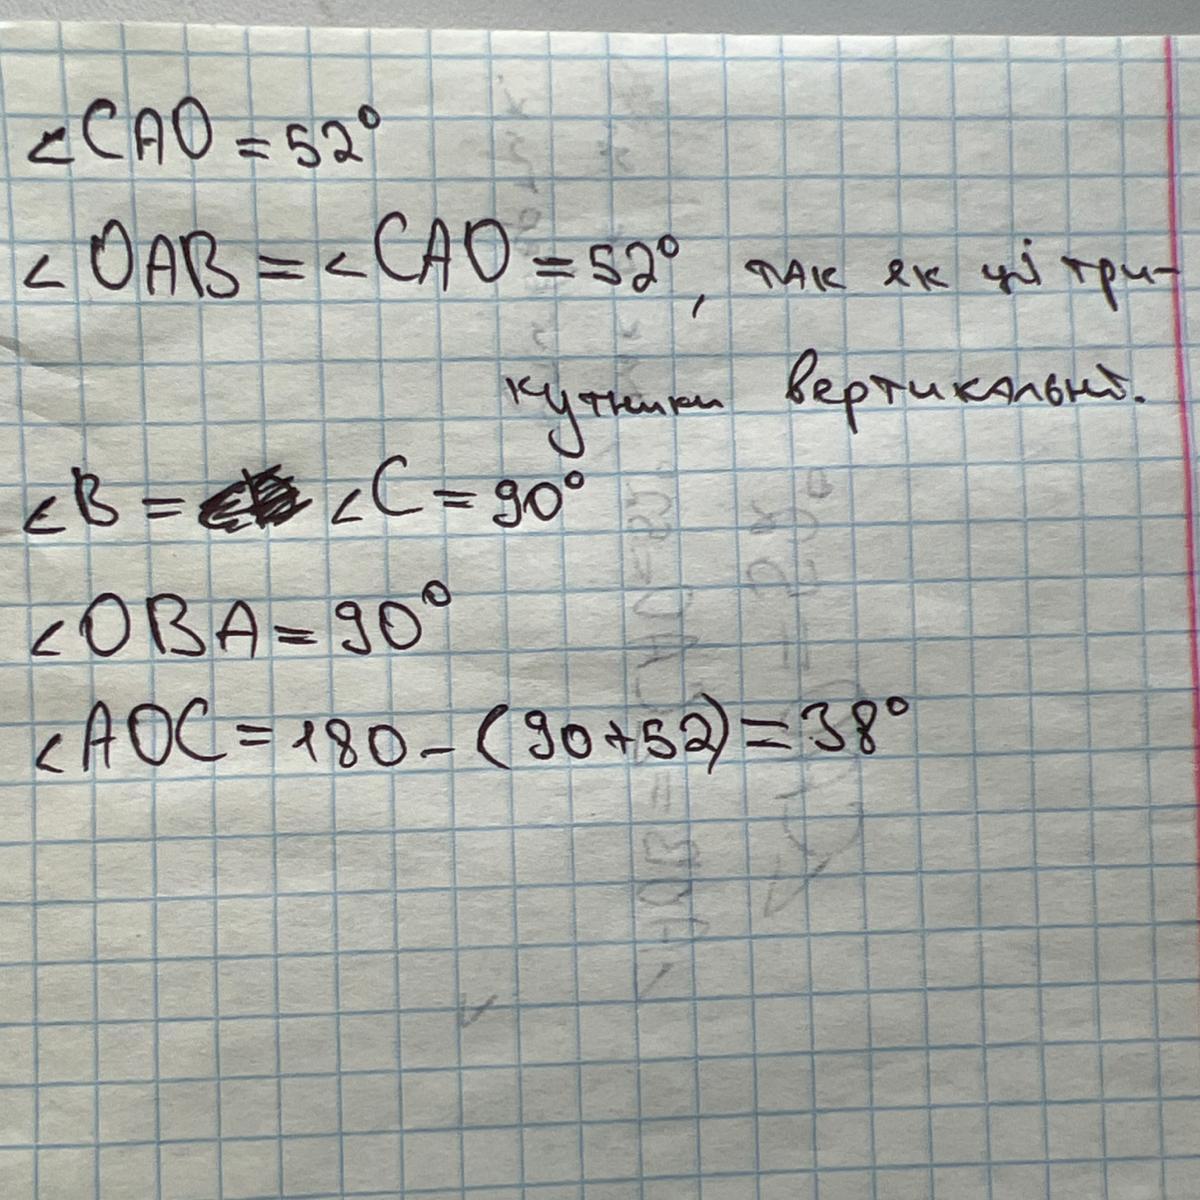 ∠CAO = 52°
∠OAB = ∠CAO = 52°, так як ці три-
кутники вертикальні.
∠B = ∠C = 90°
∠OBA = 90°
∠AOC = 180 - (90+52) = 38°